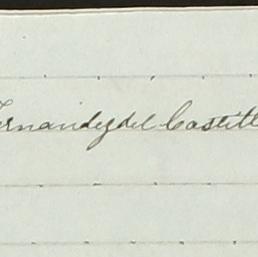 Fernandez del Castill